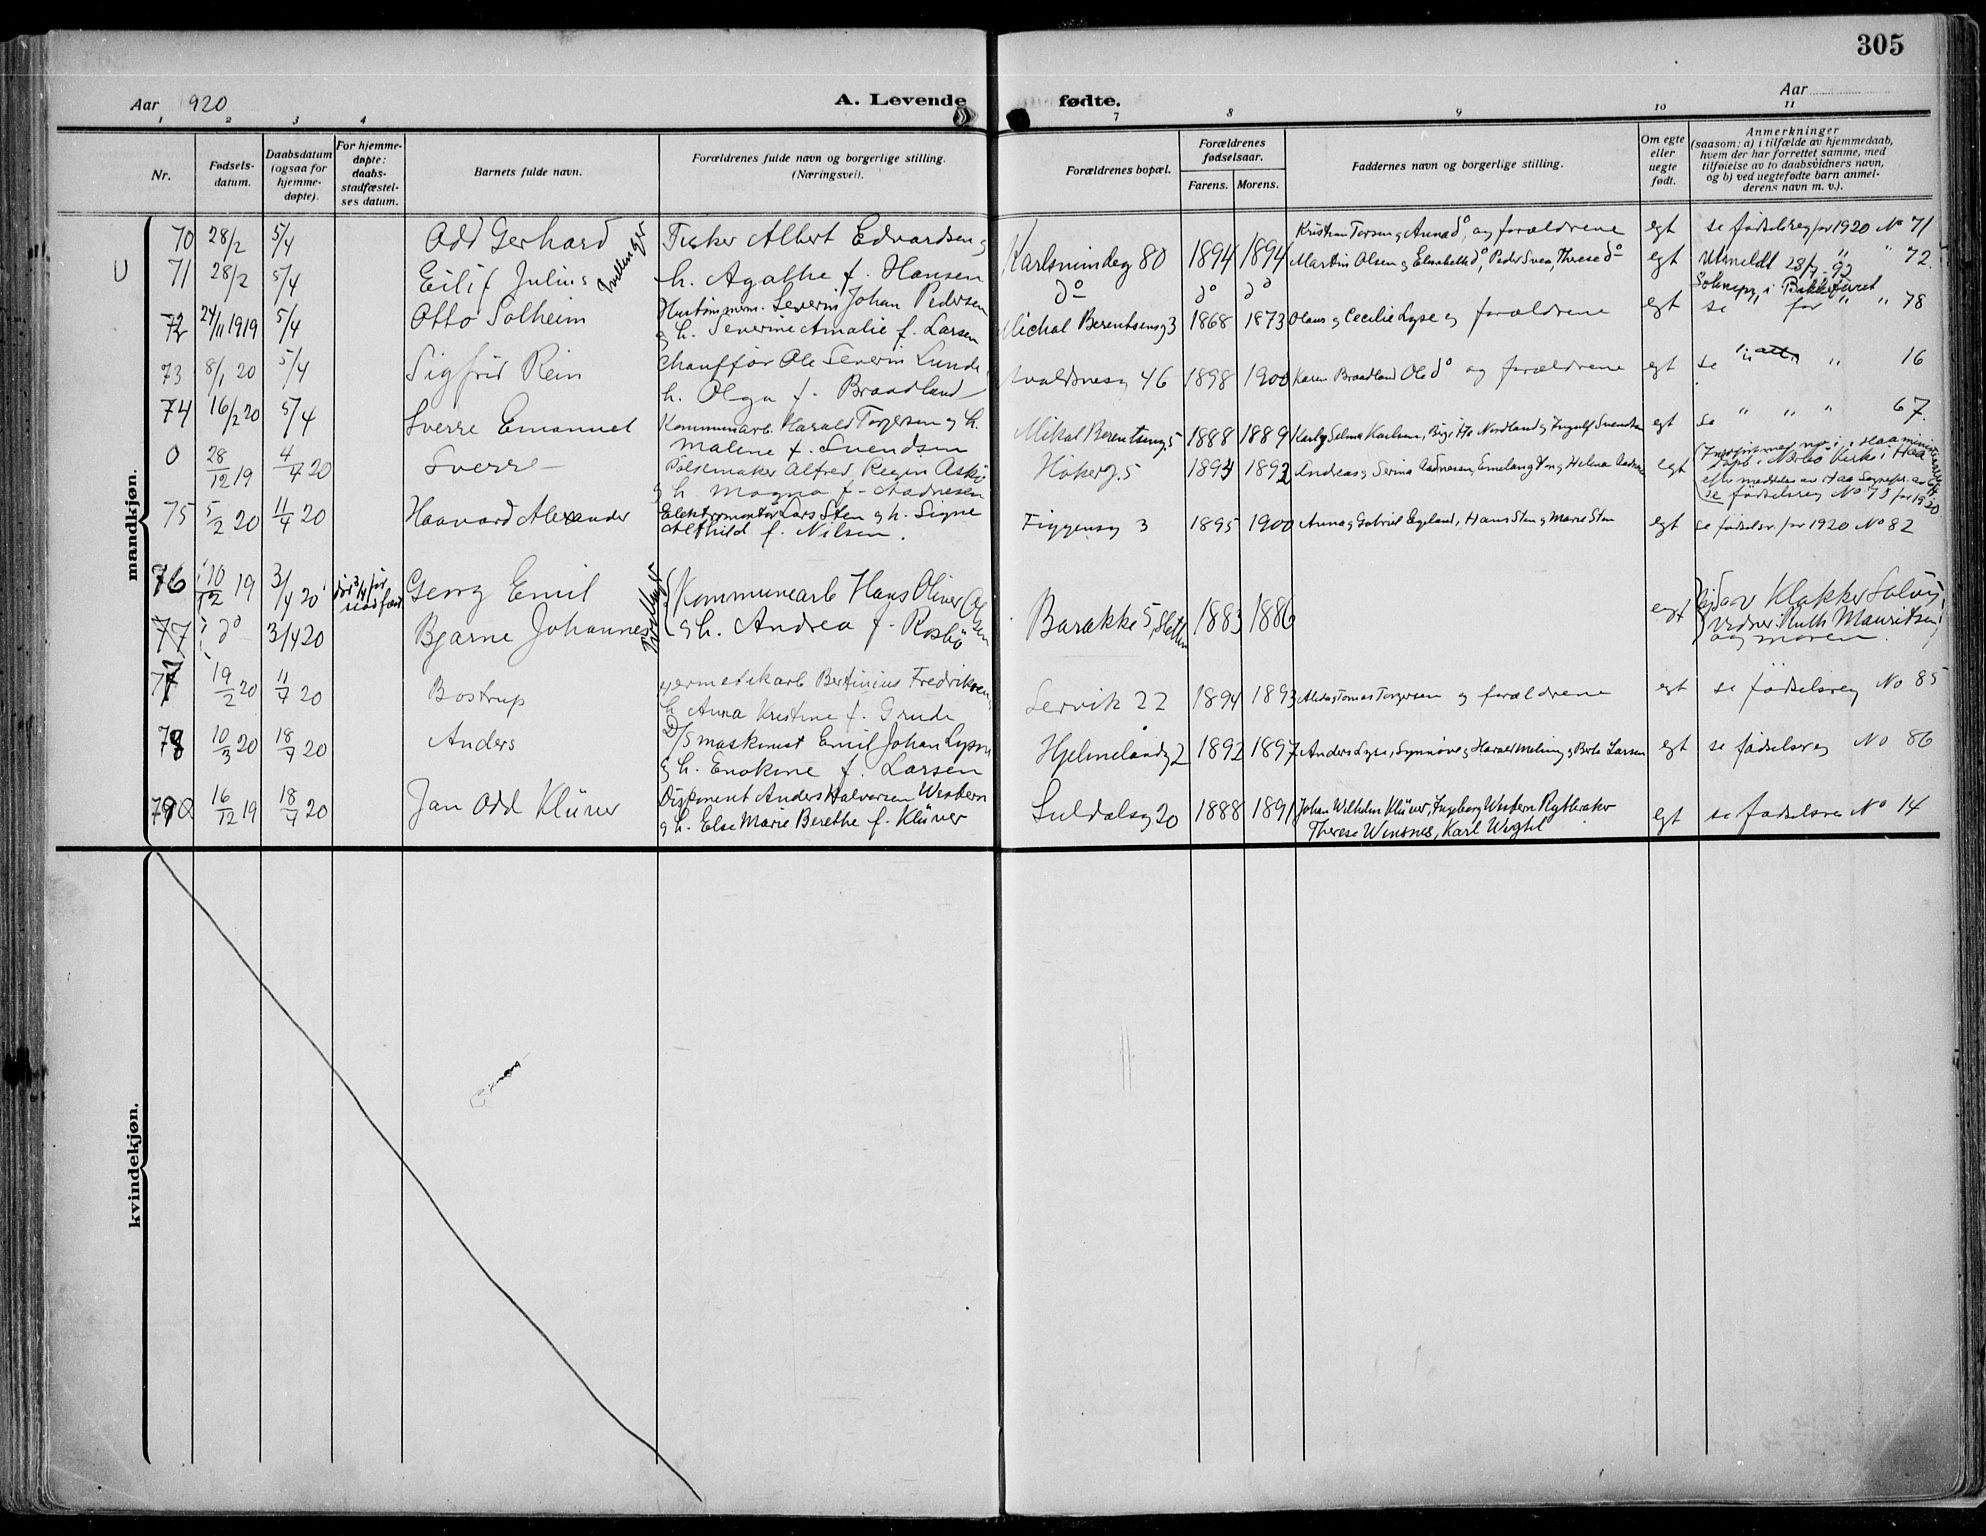 305
Aar 1920
A. Levende fødte.
Aar
1 2 3 4 7 8 9 10 11
Nr.
Fødselsdatum.
Daabsdatum (ogsaa for hjemmedøpte).
For hjemmedøpte: daabsstadfæstelses datum.
Barnets fulde navn.
Forældrenes fulde navn og borgerlige stilling. (Næringsvei).
Forældrenes bopæl.
Forældrenes fødselsaar.
Farens. Morens.
Faddernes navn og borgerlige stilling.
Om egte eller uegte født.
Anmerkninger (saasom: a) i tilfælde av hjemmedaab, hvem der har forrettet samme, med tilføielse av to daabsvidners navn, og b) ved uegtefødte barn anmelderens navn m. v.).
mandkjøn.
70 28/2 5/4 Odd Gerhard Tvillinger Fisker Albert Edvardsen og Karlsmindeg 80 1894 1894 Kristian Torsen og Anna do, og forældrene egt se fødselsreg for 1920 No 71
U 71 28/2 5/4 Eilif Julius h. Agathe f. Hansen do do do Martin Olsen og Elisabeth do, Peder Svea, Therese do egt Utmeldt 28/7-92 " " 72.
Soknepr. i Bakkehavet
72 24/11 1919 5/4 Otto Solheim Hustømmerm. Severin Johan Pedersen
og h. Severine Amalie f. Larsen Michal Berentsensg 3 1868 1873 Olaus og Cecilie Lyse og forældrene egt se for " " 78
73 8/1 20 5/4 Sigfrid Rein Chauffør Ole Severin Lunde
h. Olga f. Braadland Avaldsnesg 46 1898 1900 Karen Braadland Ole do og forældrene egt se " " 16
74 16/2 20 5/4 Sverre Emanuel Kommunearb. Harald Torgersen og h.
Maline f. Svendsen Mikal Berentseng. 5 1888 1889 Karl og Selma Karlsen, Nordland og Ingolf Svendsen egt se " " " 67.
0 28/12 19 4/4 20 Sverre Pølsemaker Alfred Regin Askø
og h. Magna f. Aadnesen Høkerg. 5 1893 1892 Andreas og Serina Aadnesen, og Helena Aadnesen egt
Døpt i Nærbø Kirke i Haa
efter meddelelse av Haa Sognepr.
se fødselsreg No 73 for 1920
75 5/2 20 11/4 20 Haavard Alexander Elektromontør Lars Sten og h. Signe
Alfhild f. Nilsen. Figgensg 3 1895 1900 Anna og Gabriel Egeland, Hans Sten og Marie Sten egt se fødselsr. for 1920 No 82
76 10/12 19 3/4 20 død 3/4 før stadfæst. Georg Emil Tvillinger Kommunearb Hans Oliver Olsen
77 do 3/4 20 Bjarne Johannes og h. Andrea f. Rosbø Barakke 5, Sletten 1883 1886 egt
Ruth Mauritsen
og moren.
77 19/2 20 11/4 20 Bostrup Hermetikarb Bertinius Fredriksen
h. Anna Kristine f. Grude Lervik 22 1894 1893 Alida og Tomas Torgersen og forældrene egt se fødselsreg No 85
78 10/3 20 18/4 20 Anders D/S maskinist Emil Johan Lyse
og h. Enokine f. Larsen Hjelmelandg 2 1892 1897 Anders Lyse, Synnøve og Harald Meling og Berta Larsen egt se fødselsreg No 86
79 16/12 19 18/4 20 Jan Odd Klüver Disponent Anders Halvorsen Western
og h. Else Marie Berethe f. Klüver Suldalsg 20 1888 1891 Johan Wilhelm Klüver, Ingeborg Western Rytteraker
Therese Wensnes, Karl Weghl egt se fødselsre No 14
kvindekjøn.